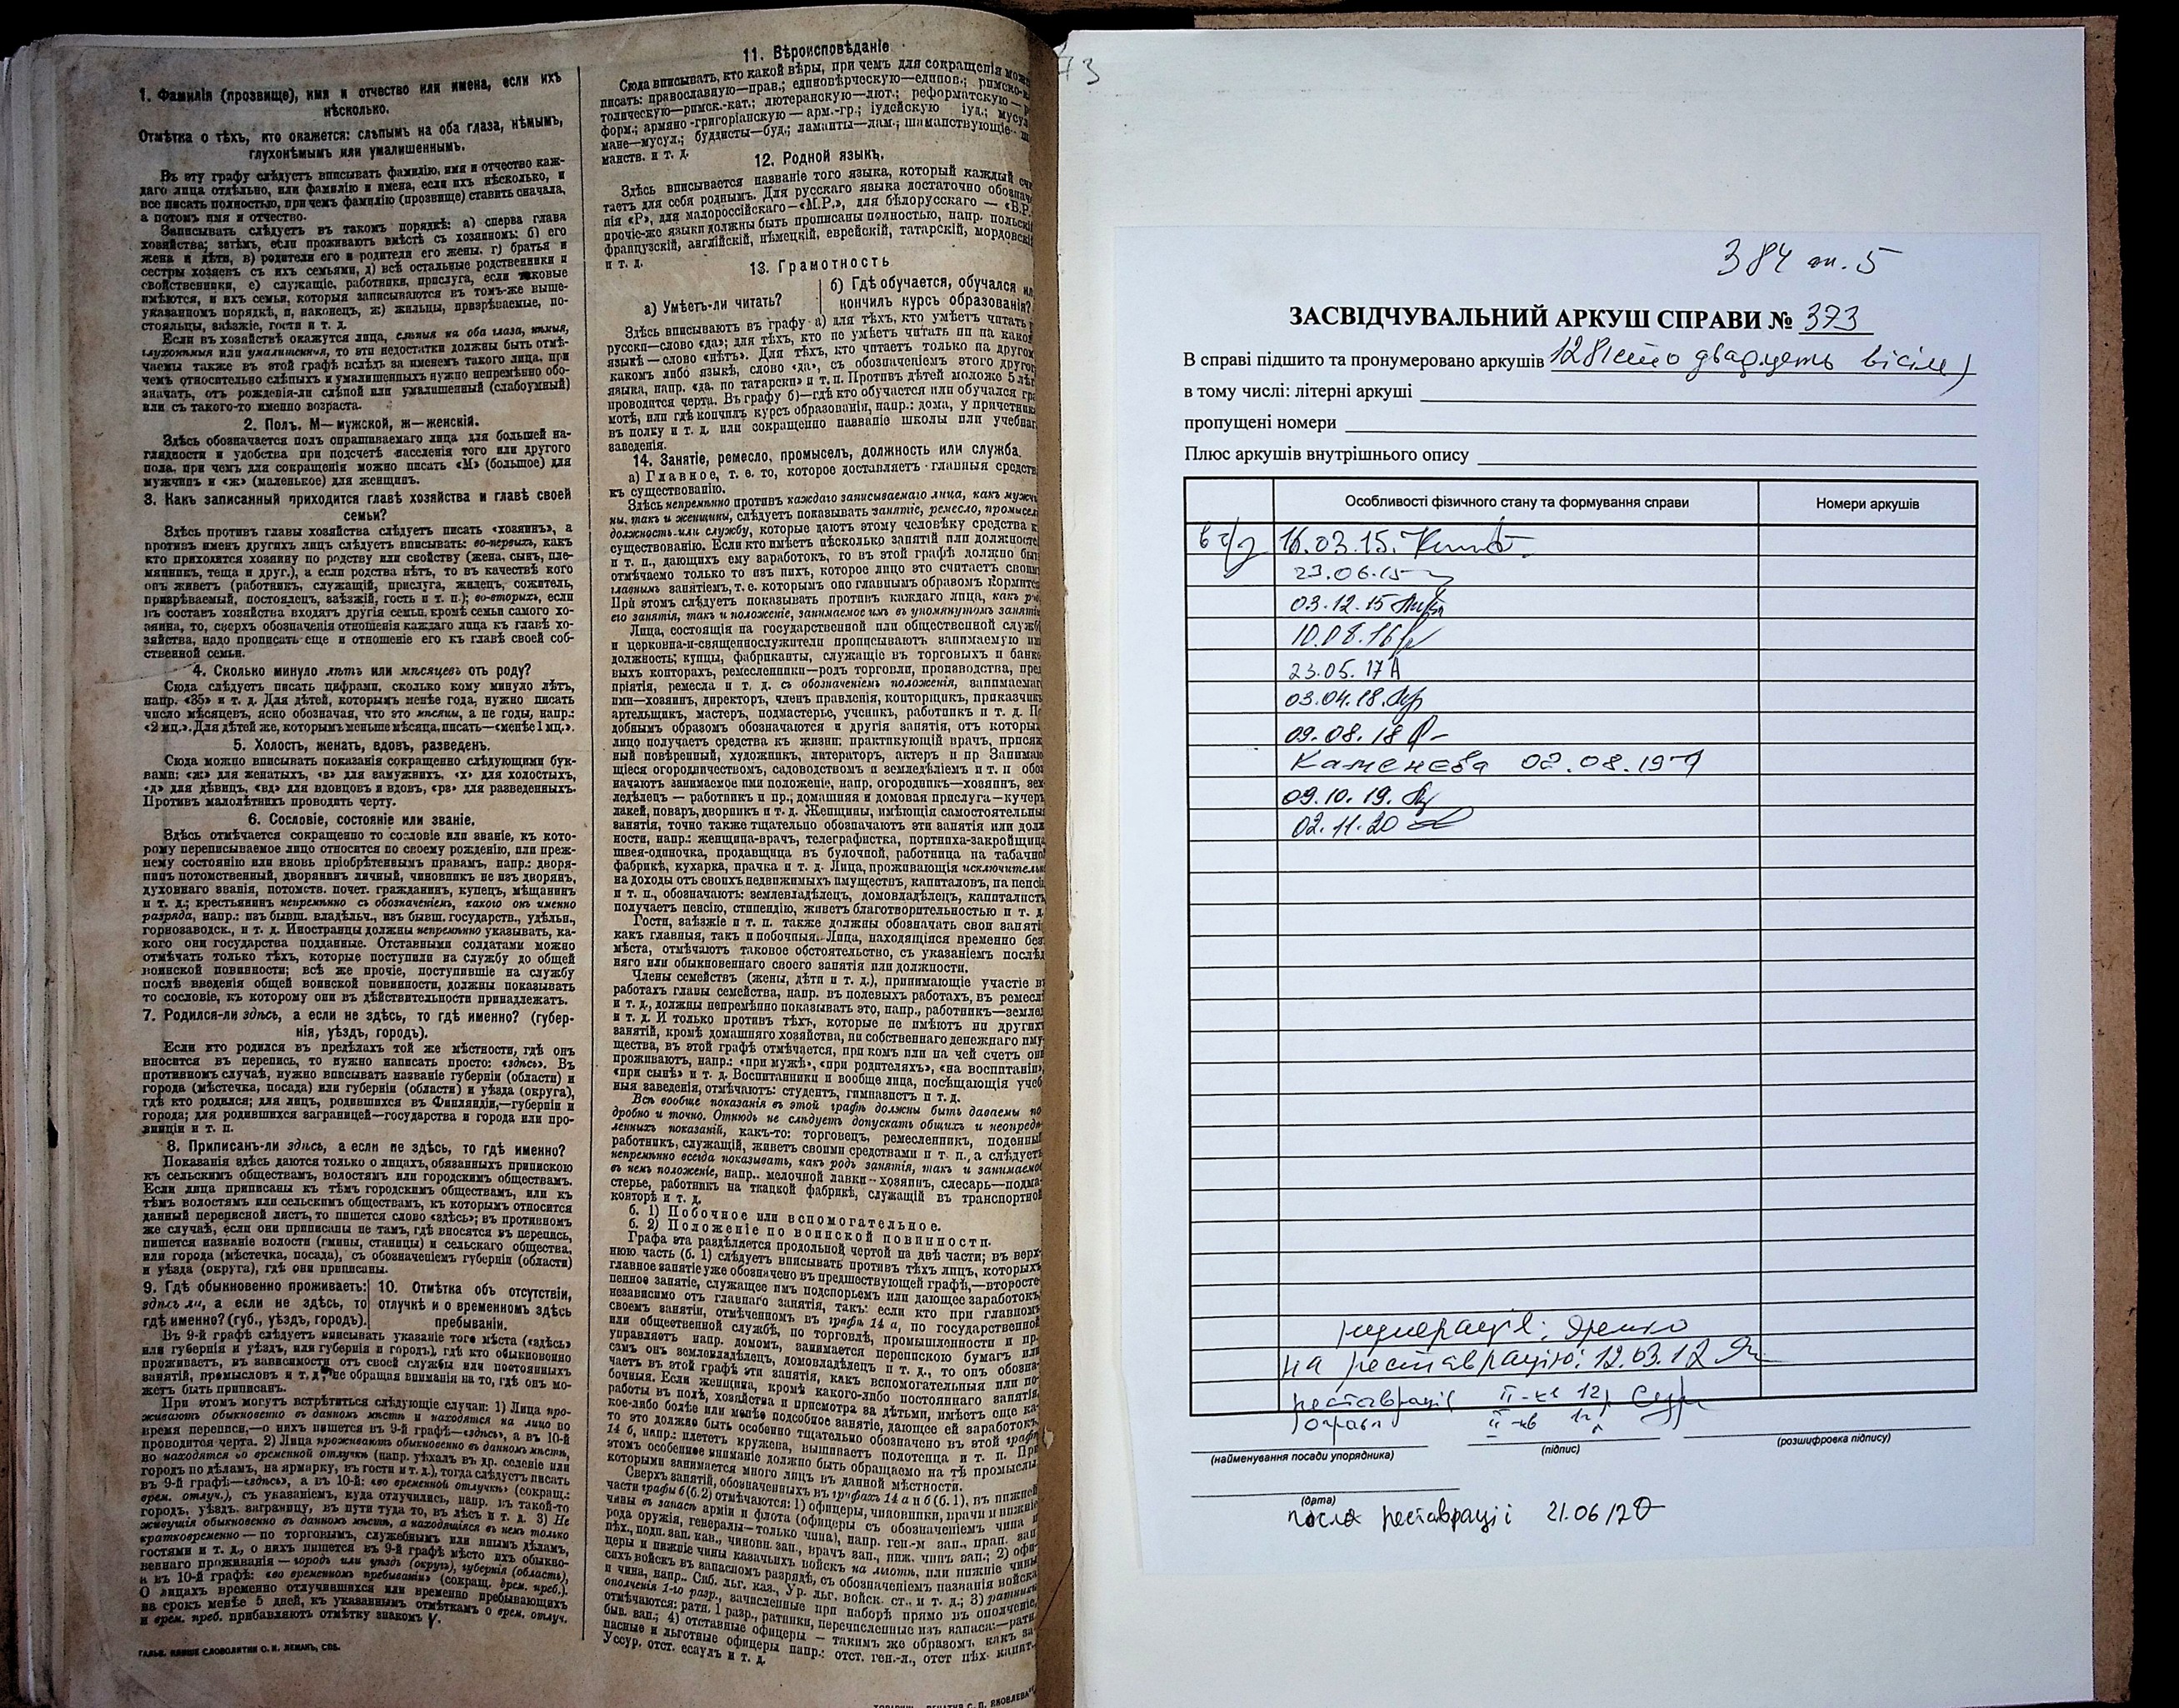 1. Фамилія (прозвище), имя и отчество или имена, если ихъ
нѣсколько.
Отмѣтка о тѣхъ, кто окажется: слѣпымъ на оба глаза, нѣмымъ,
глухонѣмымъ или умалишеннымъ.
Въ эту графу слѣдуетъ вписывать фамилію, имя и отчество каж-
даго лица отдѣльно, или фамилію и имена, если ихъ нѣсколько, и
все писать полностью, при чемъ фамилію (прозвище) ставить сначала,
а потомъ имя и отчество.
Записывать слѣдуетъ въ такомъ порядкѣ: а) сперва глава
хозяйства; затѣмъ, если проживаютъ вмѣстѣ съ хозяиномъ: б) его
жена и дѣти, в) родители его и родители его жены, г) братья и
сестры хозяевъ съ ихъ семьями, д) всѣ остальные родственники и
свойственники, е) служащіе, работники, прислуга, если таковые
имѣются, и ихъ семьи, которыя записываются въ томъ-же выше-
указанномъ порядкѣ, и, наконецъ, ж) жильцы, призрѣваемые, по-
стояльцы, заѣзжіе, гости и т. д.
Если въ хозяйствѣ окажутся лица, слѣпыя на оба глаза, нѣмыя,
глухонѣмыя или умалишенныя, то эти недостатки должны быть отмѣ-
чаемы также въ этой графѣ вслѣдъ за именемъ такого лица, при
чемъ относительно слѣпыхъ и умалишенныхъ нужно непремѣнно обо-
значать, отъ рожденія-ли слѣпой или умалишенный (слабоумный)
или съ такого-то именно возраста.
2. Полъ. М—мужской, ж—женскій.
Здѣсь обозначается полъ опрашиваемаго лица для большей на-
глядности и удобства при подсчетѣ населенія того или другого
пола, при чемъ для сокращенія можно писать «М» (большое) для
мужчинъ и «ж» (маленькое) для женщинъ.
3. Какъ записанный приходится главѣ хозяйства и главѣ своей
семьи?
Здѣсь противъ главы хозяйства слѣдуетъ писать «хозяинъ», а
противъ именъ другихъ лицъ слѣдуетъ вписывать: во-первыхъ, какъ
кто приходится хозяину по родству или свойству (жена, сынъ, пле-
мянникъ, теща и друг.), а если родства нѣтъ, то въ качествѣ кого
онъ живетъ (работникъ, служащій, прислуга, жилецъ, сожитель,
призрѣваемый, постоялецъ, заѣзжій, гость и т. п.); во-вторыхъ, если
въ составъ хозяйства входятъ другія семьи, кромѣ семьи самого хо-
зяина, то, сверхъ обозначенія отношенія каждаго лица къ главѣ хо-
зяйства, надо прописать еще и отношеніе его къ главѣ своей соб-
ственной семьи.
4. Сколько минуло лѣтъ или мѣсяцевъ отъ роду?
Сюда слѣдуетъ писать цифрами, сколько кому минуло лѣтъ,
напр. «35» и т. д. Для дѣтей, которымъ менѣе года, нужно писать
число мѣсяцевъ, ясно обозначая, что это мѣсяцы, а не годы, напр.:
«2 мц.». Для дѣтей же, которымъ меньше мѣсяца, писать—«менѣе 1 мц.».
5. Холостъ, женатъ, вдовъ, разведенъ.
Сюда можно вписывать показанія сокращенно слѣдующими бук-
вами: «ж» для женатыхъ, «з» для замужнихъ, «х» для холостыхъ,
«д» для дѣвицъ, «вд» для вдовцовъ и вдовъ, «рз» для разведенныхъ.
Противъ малолѣтнихъ проводить черту.
6. Сословіе, состояніе или званіе.
Здѣсь отмѣчается сокращенно то сословіе или званіе, къ кото-
рому переписываемое лицо относится по своему рожденію, или преж-
нему состоянію или вновь пріобрѣтеннымъ правамъ, напр.: дворя-
нинъ потомственный, дворянинъ личный, чиновникъ не изъ дворянъ,
духовнаго званія, потомств. почет. гражданинъ, купецъ, мѣщанинъ
и т. д.; крестьянинъ непремѣнно съ обозначеніемъ, какого онъ именно
разряда, напр.: изъ бывш. владѣльч., изъ бывш. государств., удѣльн.,
горнозаводск., и т. д. Иностранцы должны непремѣнно указывать, ка-
кого они государства подданные. Отставными солдатами можно
отмѣчать только тѣхъ, которые поступили на службу до общей
воинской повинности; всѣ же прочіе, поступившіе на службу
послѣ введенія общей воинской повинности, должны показывать
то сословіе, къ которому они въ дѣйствительности принадлежатъ.
7. Родился-ли здѣсь, а если не здѣсь, то гдѣ именно? (губер-
нія, уѣздъ, городъ).
Если кто родился въ предѣлахъ той же мѣстности, гдѣ онъ
вносится въ перепись, то нужно написать просто: «здѣсь». Въ
противномъ случаѣ, нужно вписывать названіе губерніи (области) и
города (мѣстечка, посада) или губерніи (области) и уѣзда (округа),
гдѣ кто родился; для лицъ, родившихся въ Финляндіи,—губерніи и
города; для родившихся заграницей—государства и города или про-
винціи и т. п.
8. Приписанъ-ли здѣсь, а если не здѣсь, то гдѣ именно?
Показанія здѣсь даются только о лицахъ, обязанныхъ припискою
къ сельскимъ обществамъ, волостямъ или городскимъ обществамъ.
Если лица приписаны къ тѣмъ городскимъ обществамъ, или къ
тѣмъ волостямъ или сельскимъ обществамъ, къ которымъ относится
данный переписной листъ, то пишется слово «здѣсь»; въ противномъ
же случаѣ, если они приписаны не тамъ, гдѣ вносятся въ перепись,
пишется названіе волости (гмины, станицы) и сельскаго общества,
или города (мѣстечка, посада), съ обозначеніемъ губерніи (области)
и уѣзда (округа), гдѣ они приписаны.
9. Гдѣ обыкновенно проживаетъ:
здѣсь ли, а если не здѣсь, то
гдѣ именно? (губ., уѣздъ, городъ).
10. Отмѣтка объ отсутствіи,
отлучкѣ и о временномъ здѣсь
пребываніи.
Въ 9-й графѣ слѣдуетъ вписывать указаніе того мѣста («здѣсь»
или губернія и уѣздъ, или губернія и городъ), гдѣ кто обыкновенно
проживаетъ, въ зависимости отъ своей службы или постоянныхъ
занятій, промысловъ и т. д., не обращая вниманія на то, гдѣ онъ мо-
жетъ быть приписанъ.
При этомъ могутъ встрѣтиться слѣдующіе случаи: 1) Лица про-
живаютъ обыкновенно въ данномъ мѣстѣ и находятся на лицо во
время переписи,—о нихъ пишется въ 9-й графѣ—«здѣсь», а въ 10-й
проводится черта. 2) Лица проживаютъ обыкновенно въ данномъ мѣстѣ,
но находятся во временной отлучкѣ (напр. уѣхалъ въ др. селеніе или
городъ по дѣламъ, на ярмарку, въ гости и т. д.), тогда слѣдуетъ писать
въ 9-й графѣ—«здѣсь», а въ 10-й: «во временной отлучкѣ» (сокращ.:
врем. отлуч.), съ указаніемъ, куда отлучились, напр. въ такой-то
городъ, уѣздъ, заграницу, въ пути туда то, въ лѣсъ и т. д. 3) Не
живущія обыкновенно въ данномъ мѣстѣ, а находящіяся въ немъ только
кратковременно — по торговымъ, служебнымъ или инымъ дѣламъ,
гостями и т. д., о нихъ пишется въ 9-й графѣ мѣсто ихъ обыкно-
веннаго проживанія — городъ или уѣздъ (округъ), губернія (область),
а въ 10-й графѣ: «во временномъ пребываніи» (сокращ. врем. преб.).
О лицахъ временно отлучившихся или временно пребывающихъ
на срокъ менѣе 5 дней, къ указаннымъ отмѣткамъ о врем. отлуч.
и врем. преб. прибавляютъ отмѣтку знакомъ V.
СЛОВОЛИТНИ О. И. ЛЕМАНЪ, СПБ.
11. Вѣроисповѣданіе
Сюда вписывать, кто какой вѣры, при чемъ для сокращенія можно
писать: православную—прав.; единовѣрческую—единов.; римско-к
толическую—римск.-кат.; лютеранскую—лют.; реформатскую — р
форм.; армяно-григоріанскую — арм.-гр.; іудейскую іуд.; мусул
мане—мусул.; буддисты—буд.; ламаиты—лам.; шаманствующіе— ш
манств. и т. д.
12. Родной языкъ.
Здѣсь вписывается названіе того языка, который каждый счи
таетъ для себя роднымъ. Для русскаго языка достаточно обозначе
нія «Р», для малороссійскаго—«М.Р.», для бѣлорусскаго — «Б.Р.
прочіе-же языки должны быть прописаны полностью, напр. польскій
французскій, англійскій, нѣмецкій, еврейскій, татарскій, мордовскій
и т. д.
13. Грамотность
а) Умѣетъ-ли читать?
б) Гдѣ обучается, обучался ил
кончилъ курсъ образованія?
Здѣсь вписываютъ въ графу а) для тѣхъ, кто умѣетъ читать п
русски—слово «да»; для тѣхъ, кто не умѣетъ читать ни на каком
языкѣ — слово «нѣтъ». Для тѣхъ, кто читаетъ только на другом
какомъ либо языкѣ, слово «да», съ обозначеніемъ этого другог
языка, напр. «да, по татарски» и т. п. Противъ дѣтей моложе 5 лѣт
проводится черта. Въ графу б)—гдѣ кто обучается или обучался гра
мотѣ, или гдѣ кончилъ курсъ образованія, напр.: дома, у причетника
въ полку и т. д. или сокращенно названіе школы или учебнаг
заведенія.
14. Занятіе, ремесло, промыселъ, должность или служба.
а) Главное, т. е. то, которое доставляетъ главныя средств
къ существованію.
Здѣсь непремѣнно противъ каждаго записываемаго лица, какъ мужчи
ны, такъ и женщины, слѣдуетъ показывать занятіе, ремесло, промысел
должность или службу, которые даютъ этому человѣку средства к
существованію. Если кто имѣетъ нѣсколько занятій или должносте
и т. п., дающихъ ему заработокъ, то въ этой графѣ должно быт
отмѣчаемо только то изъ нихъ, которое лицо это считаетъ своим
главнымъ занятіемъ, т. е. которымъ оно главнымъ образомъ кормитс
При этомъ слѣдуетъ показывать противъ каждаго лица, какъ ро
его занятія, такъ и положеніе, занимаемое имъ въ упомянутомъ заняті
Лица, состоящія на государственной или общественной служб
и церковна-и-священнослужители прописываютъ занимаемую им
должность; купцы, фабриканты, служащіе въ торговыхъ и банко
выхъ конторахъ, ремесленники—родъ торговли, производства, пред
пріятія, ремесла и т. д. съ обозначеніемъ положенія, занимаемаг
ими—хозяинъ, директоръ, членъ правленія, конторщикъ, приказчикъ
артельщикъ, мастеръ, подмастерье, ученикъ, работникъ и т. д. По
добнымъ образомъ обозначаются и другія занятія, отъ которых
лицо получаетъ средства къ жизни: практикующій врачъ, присяж
ный повѣренный, художникъ, литераторъ, актеръ и пр Занимаю
щіеся огородничествомъ, садоводствомъ и земледѣліемъ и т. п. обоз
начаютъ занимаемое ими положеніе, напр. огородникъ—хозяинъ, зем
ледѣлецъ — работникъ и пр.; домашняя и домовая прислуга—кучеръ
лакей, поваръ, дворникъ и т. д. Женщины, имѣющія самостоятельны
занятія, точно также тщательно обозначаютъ эти занятія или долж
ности, напр.: женщина-врачъ, телеграфистка, портниха-закройщица
швея-одиночка, продавщица въ булочной, работница на табачно
фабрикѣ, кухарка, прачка и т. д. Лица, проживающія исключительн
на доходы отъ своихъ недвижимыхъ имуществъ, капиталовъ, на пенсіи
и т. п., обозначаютъ: землевладѣлецъ, домовладѣлецъ, капиталистъ
получаетъ пенсію, стипендію, живетъ благотворительностью и т. д.
Гости, заѣзжіе и т. п. также должны обозначать свои заняті
какъ главныя, такъ и побочныя. Лица, находящіяся временно без
мѣста, отмѣчаютъ таковое обстоятельство, съ указаніемъ послѣд
няго или обыкновеннаго своего занятія или должности.
Члены семействъ (жены, дѣти и т. д.), принимающіе участіе въ
работахъ главы семейства, напр. въ полевыхъ работахъ, въ ремесл
и т. д., должны непремѣнно показывать это, напр., работникъ—землед
и т. д. И только противъ тѣхъ, которые не имѣютъ ни другихъ
занятій, кромѣ домашняго хозяйства, ни собственнаго денежнаго иму
щества, въ этой графѣ отмѣчается, при комъ или на чей счетъ они
проживаютъ, напр.: «при мужѣ», «при родителяхъ», «на воспитаніи»
«при сынѣ» и т. д. Воспитанники и вообще лица, посѣщающія учеб
ныя заведенія, отмѣчаютъ: студентъ, гимназистъ и т. д.
Всѣ вообще показанія въ этой графѣ должны быть даваемы по
дробно и точно. Отнюдь не слѣдуетъ допускать общихъ и неопредѣ
ленныхъ показаній, какъ-то: торговецъ, ремесленникъ, поденный
работникъ, служащій, живетъ своими средствами и т. п., а слѣдуетъ
непремѣнно всегда показывать, какъ родъ занятія, такъ и занимаемое
въ немъ положеніе, напр.. мелочной лавки--хозяинъ, слесарь—подма-
стерье, работникъ на ткацкой фабрикѣ, служащій въ транспортной
конторѣ и т. д.
б. 1) Побочное или вспомогательное.
б. 2) Положеніе по воинской повинности.
Графа эта раздѣляется продольной чертой на двѣ части; въ верх-
нюю часть (б. 1) слѣдуетъ вписывать противъ тѣхъ лицъ, которыхъ
главное занятіе уже обозначено въ предшествующей графѣ,—второсте-
пенное занятіе, служащее имъ подспорьемъ или дающее заработокъ,
независимо отъ главнаго занятія, такъ: если кто при главномъ
своемъ занятіи, отмѣченномъ въ графѣ 14 а, по государственной
или общественной службѣ, по торговлѣ, промышленности и пр.
управляетъ напр. домомъ, занимается перепискою бумагъ или
самъ онъ землевладѣлецъ, домовладѣлецъ и т. д., то онъ обозна-
чаетъ въ этой графѣ эти занятія, какъ вспомогательныя или по-
бочныя. Если женщина, кромѣ какого-либо постояннаго занятія,
работы въ полѣ, хозяйства и присмотра за дѣтьми, имѣетъ еще ка-
кое-либо болѣе или менѣе подсобное занятіе, дающее ей заработокъ,
то это должно быть особенно тщательно обозначено въ этой графѣ
14 б, напр.: плететъ кружева, вышиваетъ полотенца и т. п. При
этомъ особенное вниманіе должно быть обращаемо на тѣ промыслы,
которыми занимается много лицъ въ данной мѣстности.
Сверхъ занятій, обозначенныхъ въ графахъ 14 а и б (б. 1), въ нижней
части графы б (б. 2) отмѣчаются: 1) офицеры, чиновники, врачи и нижніе
чины въ запасѣ арміи и флота (офицеры съ обозначеніемъ чина и
рода оружія, генералы—только чина), напр. ген.-м зап., прап. зап
пѣх., подп. зап. кав., чиновн. зап., врачъ зап., ниж. чинъ зап.; 2) офи-
церы и нижніе чины казачьихъ войскъ на льготѣ, или нижніе чины
сихъ войскъ въ запасномъ разрядѣ, съ обозначеніемъ названія войска
и чина, напр.. Сиб. льг. каз., Ур. льг. войск. ст., и т. д.; 3) ратники
ополченія 1-го разр., зачисленные при наборѣ прямо въ ополченіе,
отмѣчаются: ратн. 1 разр., ратники, перечисленные изъ запаса:—ратн.
быв. зап.; 4) отставные офицеры — такимъ же образомъ, какъ за-
пасные и льготные офицеры напр.: отст. ген.-л., отст пѣх. капит.,
Уссур. отст. есаулъ и т. д.
С. П. ЯКОВЛЕВА
73
384 оп. 5
ЗАСВІДЧУВАЛЬНИЙ АРКУШ СПРАВИ № 373
В справі підшито та пронумеровано аркушів 128 (сто двадцять вісім)
в тому числі: літерні аркуші
пропущені номери
Плюс аркушів внутрішнього опису
Особливості фізичного стану та формування справи
Номери аркушів
16.03.15.
23.06.15
03.12.15
10.08.16
23.05.17
03.04.18.
09.08.18
Каменєва 02.08.19
09.10.19.
02.11.20
нумерації: Яренко
на реставрацію: 12.03.12
реставрації II-кв 12р
оправи II-кв 12р
(найменування посади упорядника)
(підпис)
(розшифровка підпису)
(дата)
після реставрації 21.06/20